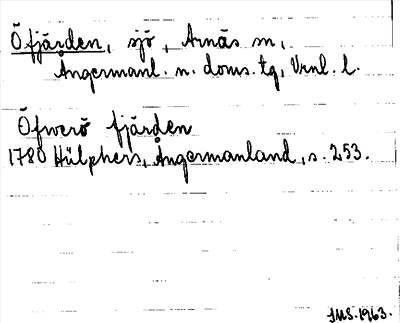 Öfjärden, sjö, Arnäs sn,
Ångermanl. n. doms. tg, Vrnl. l.
Öfwerö fjärden
1780 Hülphers, Ångermanland, s. 253.
JMS. 1963.